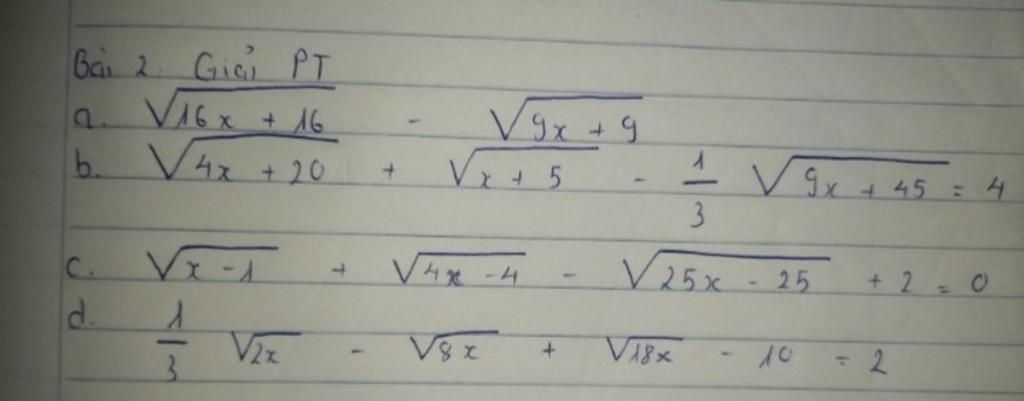 Bài 2. Giải PT
a. √(16x + 16) - √(9x + 9)
b. √(4x + 20) + √(x + 5) - 1/3 √(9x + 45) = 4
c. √(x - 1) + √(4x - 4) - √(25x - 25) + 2 = 0
d. 1/3 √(2x) - √(8x) + √(18x) - 10 = 2